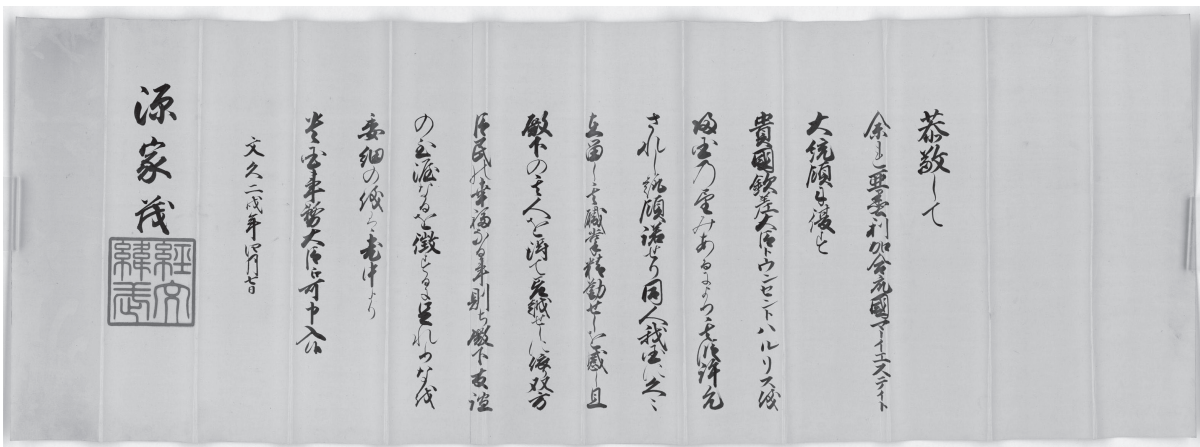 恭敬して
亜墨利加合衆國マーイエステイト
大統領に復す
貴國欽差大臣トウンセントハルリス儀
帰国の望みあるによつて其段許允
されし趣領諾せり同人我国に久々
在留し其職掌精勤せしを感し且
殿下の其人を得て差越せしに依双方
臣民の幸福なる事則ち殿下友誼
の至渥なるを徴するに足れり
委細の儀は老中より
貴国事務大臣江可申入候
文久二戌年四月七日
源家茂
經文
緯武